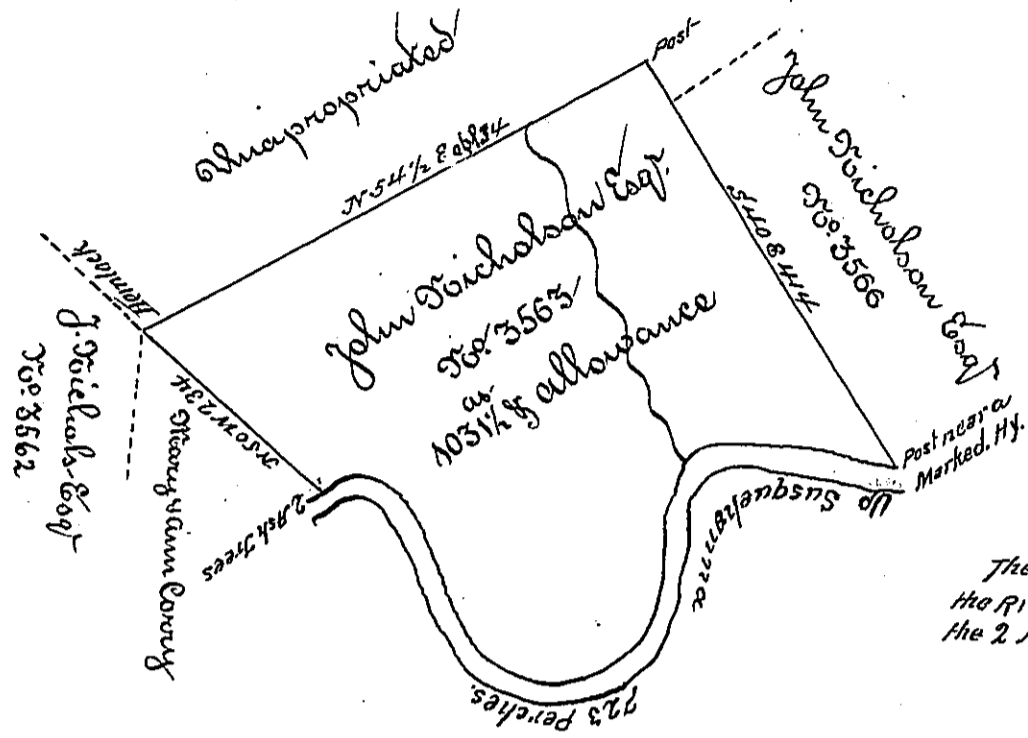 Unapropriated
Post
N 54 1/2 E
John Nicholson Esqr.
No. 3566
S 40 E 414
John Nicholson Esqr.
No. 3563
1031 1/2 as & allowance
Hemlock
J. Nichols Esqr
No. 3562
N 50 W 234
Mary Ann Corry
2 Ash Trees
Post near a
Marked. Hy.
Up Susquehanna
723 Perches.
The
the Ri
the 2